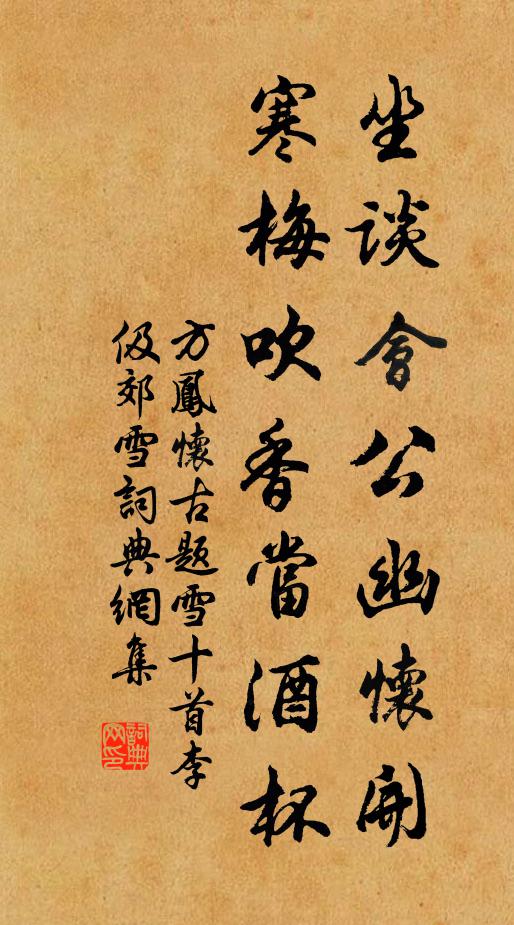 坐談會公幽懷開
寒梅吹香當酒杯
方鳳懷古題雪十首李
伋郊雪詞典網集
詞典網印